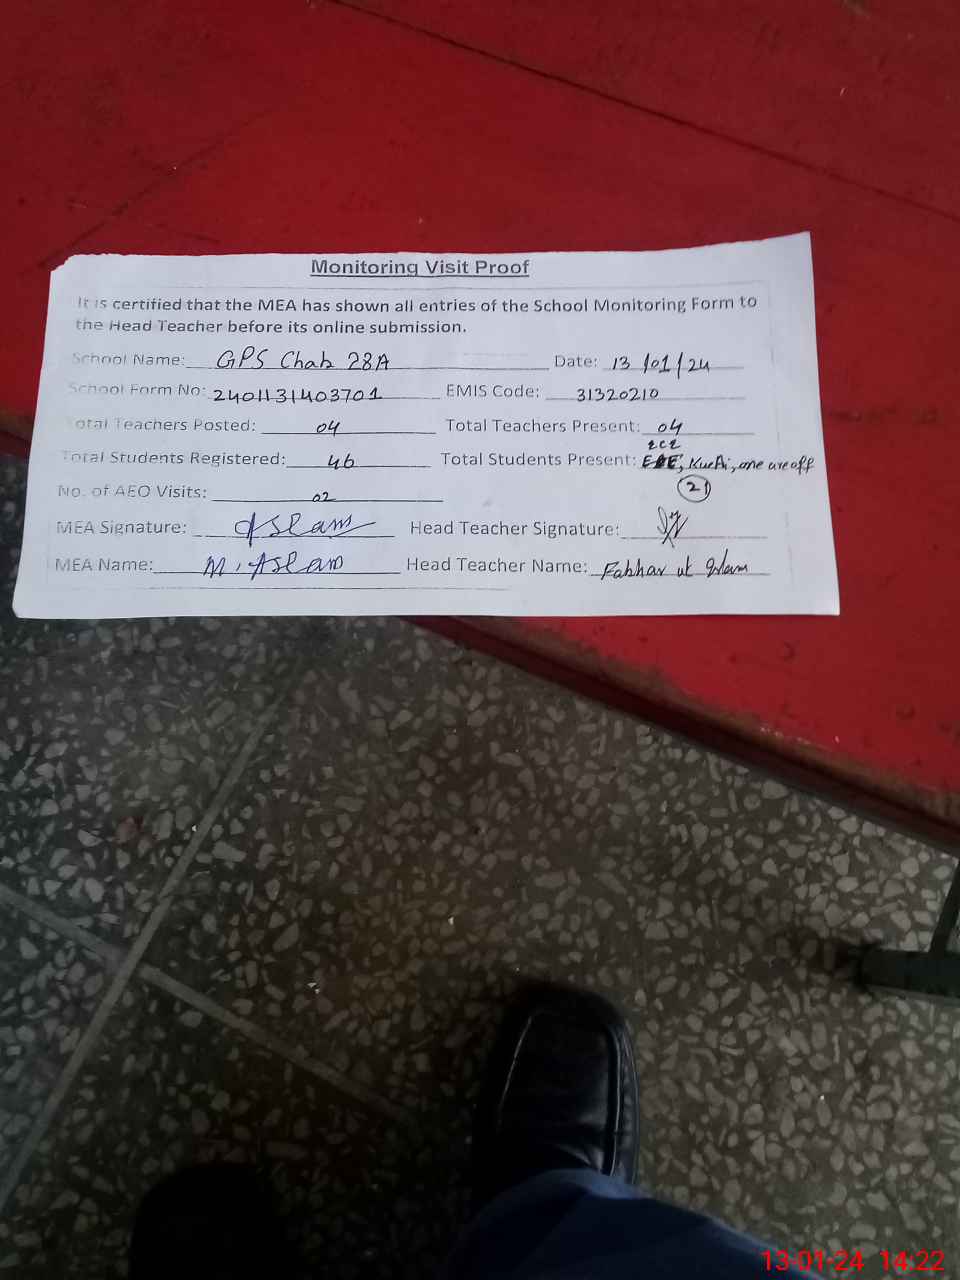 Monitoring Visit Proof
It is certified that the MEA has shown all entries of the School Monitoring Form to
the Head Teacher before its online submission.
School Name: GPS Chak 28A Date: 13/01/24
School Form No: 2401131403701 EMIS Code: 31320210
Total Teachers Posted: 04 Total Teachers Present: 04
ece
Total Students Registered: 46 Total Students Present: , Kachi, one are off
21
No. of AEO Visits: 02
MEA Signature: Aslam Head Teacher Signature:
MEA Name: M. Aslam Head Teacher Name: ul Islam
13-01-24 14:22